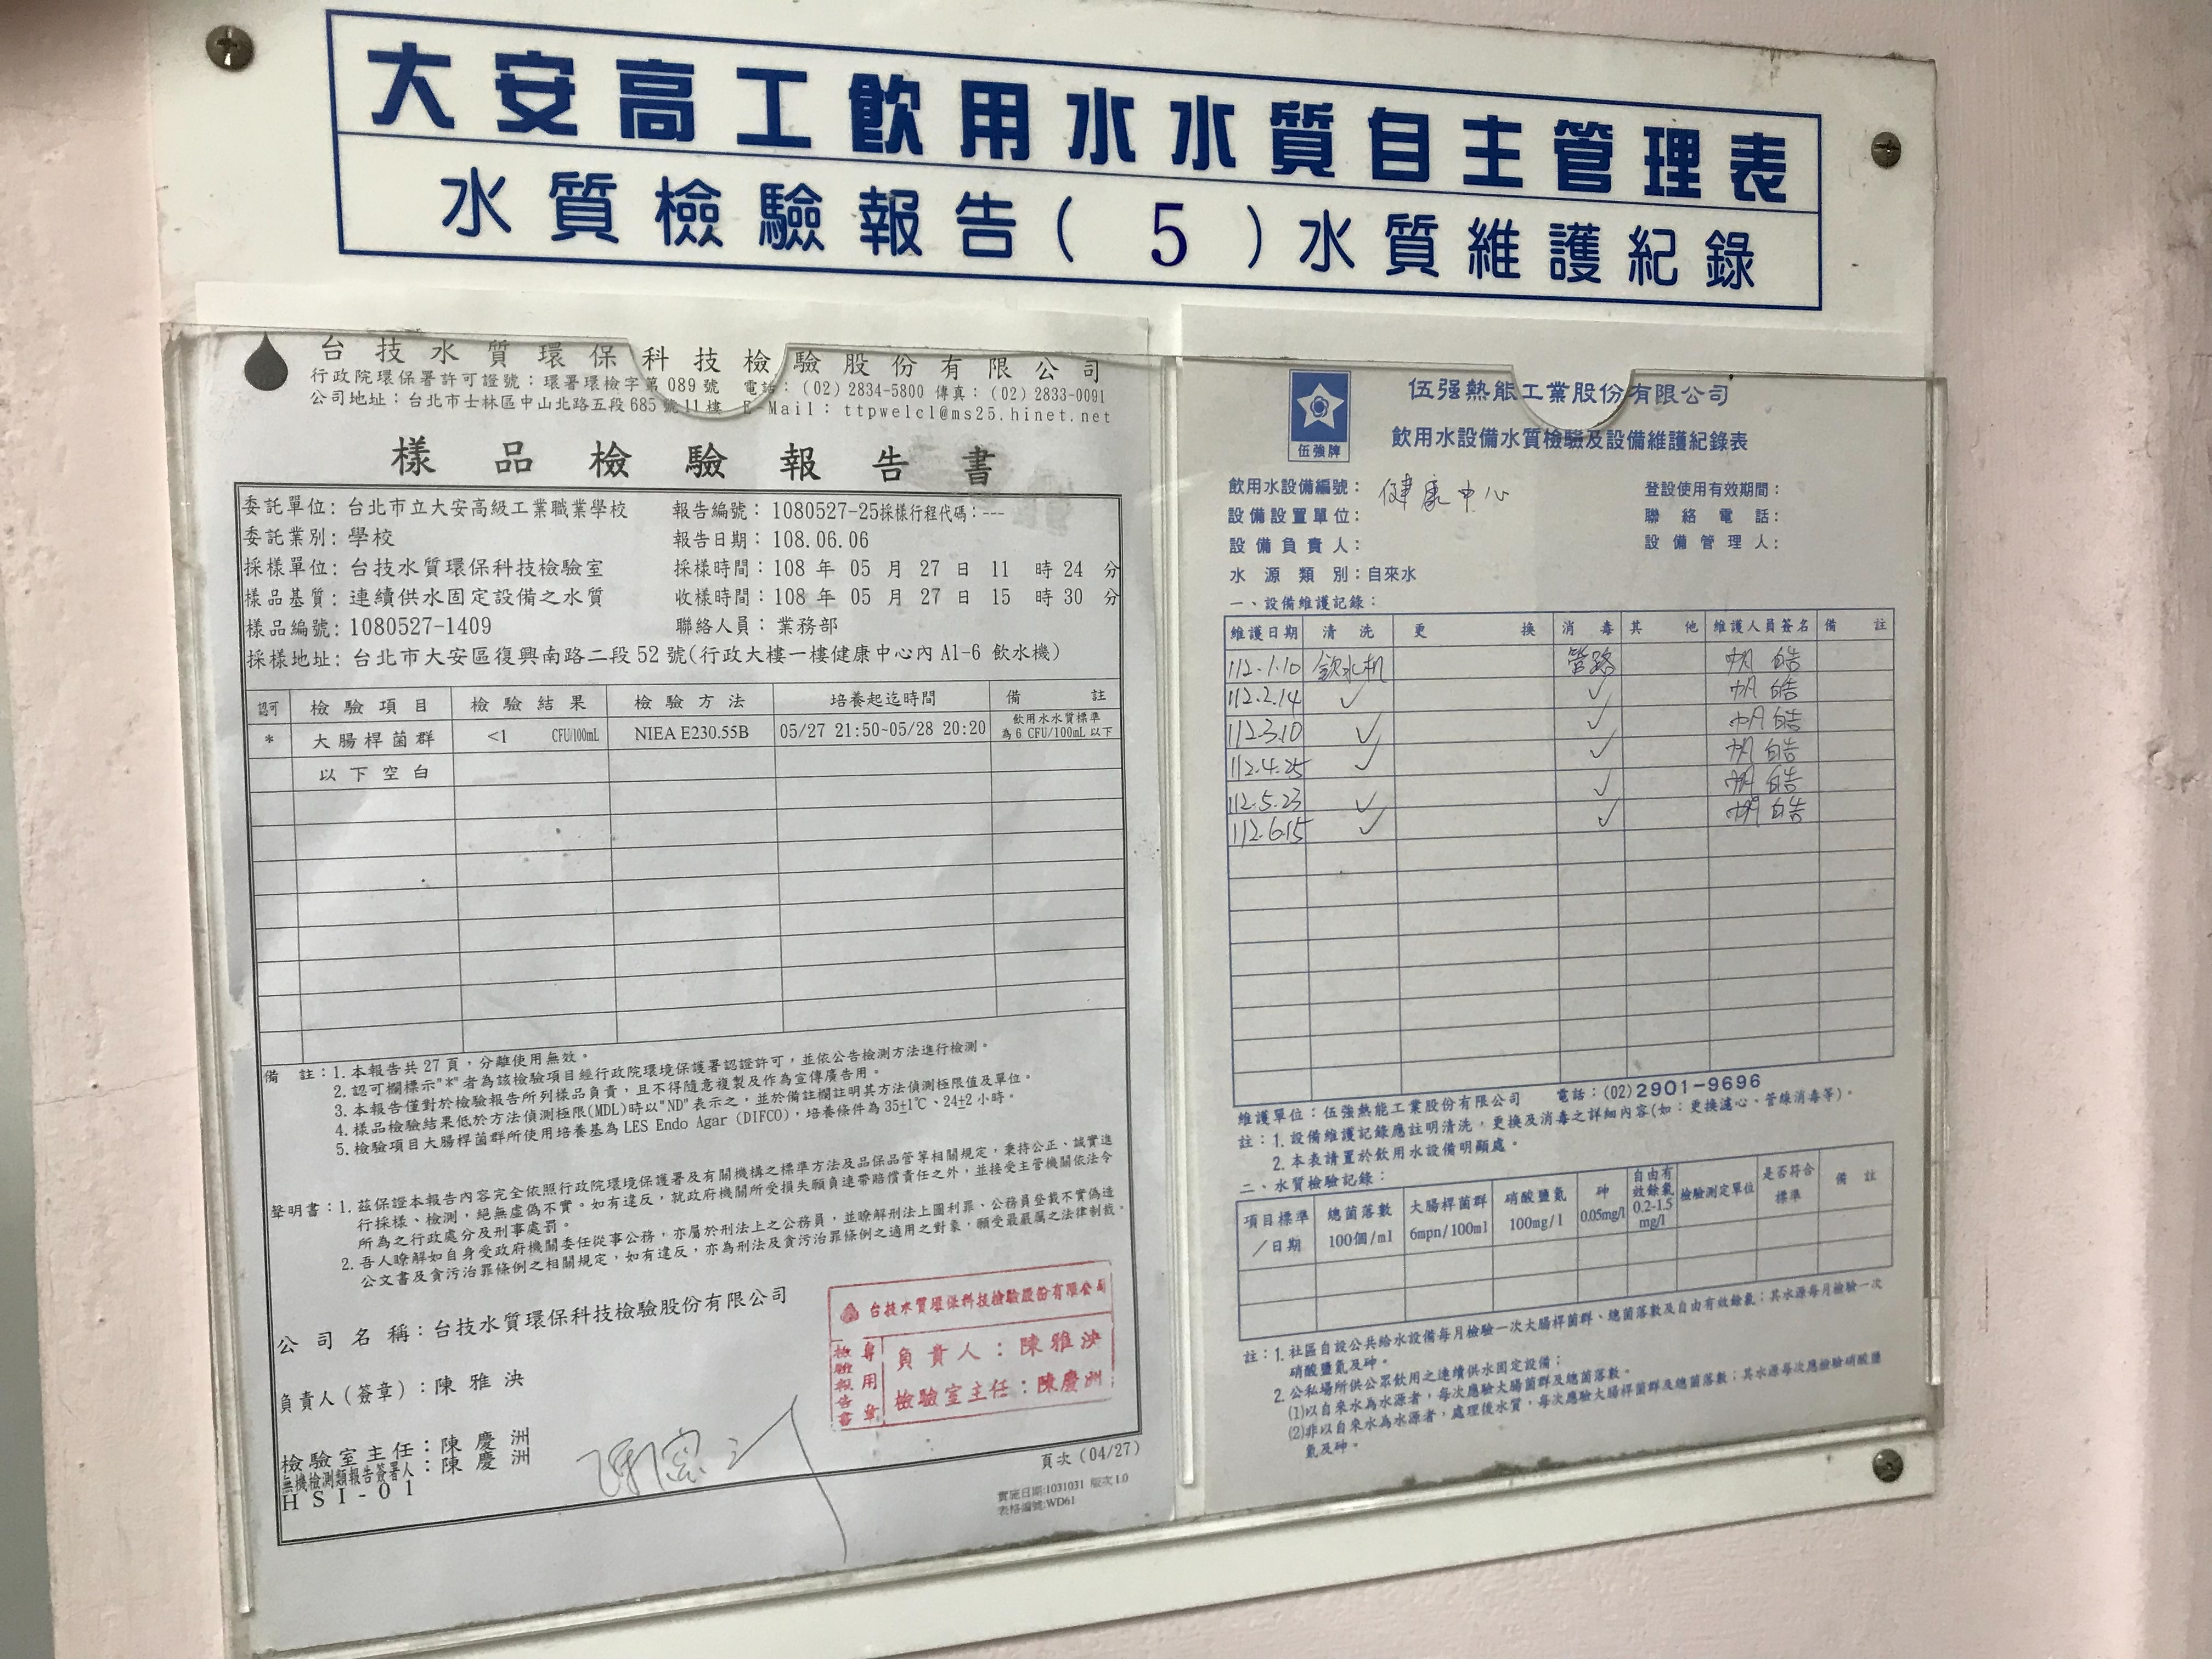 大安高工飲用水水質自主管理表
水質檢驗報告( 5 )水質維護紀錄
台技水質環保科技檢驗股份有限公司
行政院環保署許可證號：環署環檢字第 089 號 電話：(02) 2834-5800 傳真：(02) 2833-0091
公司地址：台北市士林區中山北路五段 685 號 11 樓 E-Mail：ttpwelcl@ms25.hinet.net
樣品檢驗報告書
委託單位：台北市立大安高級工業職業學校 報告編號：1080527-25採樣行程代碼：---
委託業別：學校 報告日期：108.06.06
採樣單位：台技水質環保科技檢驗室 採樣時間：108 年 05 月 27 日 11 時 24 分
樣品基質：連續供水固定設備之水質 收樣時間：108 年 05 月 27 日 15 時 30 分
樣品編號：1080527-1409 聯絡人員：業務部
採樣地址：台北市大安區復興南路二段 52 號(行政大樓一樓健康中心內 A1-6 飲水機)
認可 檢驗項目 檢驗結果 檢驗方法 培養起迄時間 備註
* 大腸桿菌群 <1 CFU/100mL NIEA E230.55B 05/27 21:50~05/28 20:20 飲用水水質標準
為 6 CFU/100mL 以下
以下空白
備註：1. 本報告共 27 頁，分離使用無效。
2. 認可欄標示"*"者為該檢驗項目經行政院環境保護署認證許可，並依公告檢測方法進行檢測。
3. 本報告僅對於檢驗報告所列樣品負責，且不得隨意複製及作為宣傳廣告用。
4. 樣品檢驗結果低於方法偵測極限(MDL)時以"ND"表示之，並於備註欄註明其方法偵測極限值及單位。
5. 檢驗項目大腸桿菌群所使用培養基為 LES Endo Agar (DIFCO)，培養條件為 35±1℃、24±2 小時。
聲明書：1. 茲保證本報告內容完全依照行政院環境保護署及有關機構之標準方法及品保品管等相關規定，秉持公正、誠實進
行採樣、檢測，絕無虛偽不實。如有違反，就政府機關所受損失願負連帶賠償責任之外，並接受主管機關依法令
所為之行政處分及刑事處罰。
2. 吾人瞭解如自身受政府機關委任從事公務，亦屬於刑法上之公務員，並瞭解刑法上圖利罪、公務員登載不實偽造
公文書及貪污治罪條例之相關規定，如有違反，亦為刑法及貪污治罪條例之適用之對象，願受最嚴厲之法律制裁。
公司名稱：台技水質環保科技檢驗股份有限公司
負責人(簽章)：陳雅泱
檢驗室主任：陳慶洲
無機檢測類報告簽署人：陳慶洲
HSI-01
台技水質環保科技檢驗股份有限公司
檢驗報告書
專用章
負責人：陳雅泱
檢驗室主任：陳慶洲
頁次 (04/27)
實施日期:1031031 版次1.0
表格編號:WD61
伍強牌
伍强熱能工業股份有限公司
飲用水設備水質檢驗及設備維護紀錄表
飲用水設備編號：健康中心 登設使用有效期間：
設備設置單位： 聯絡電話：
設備負責人： 設備管理人：
水源類別：自來水
一、設備維護記錄：
維護日期 清洗 更換 消毒 其他 維護人員簽名 備註
112.1.10 飲水机 管路
112.2.14 ✓ ✓
112.3.10 ✓ ✓
112.4.25 ✓ ✓
112.5.23 ✓ ✓
112.6.15 ✓ ✓
維護單位：伍強熱能工業股份有限公司 電話：(02)2901-9696
註：1. 設備維護記錄應註明清洗，更換及消毒之詳細內容(如：更換濾心、管線消毒等)。
2. 本表請置於飲用水設備明顯處。
二、水質檢驗記錄：
項目標準／日期 總菌落數 100個/ml 大腸桿菌群 6mpn/100ml 硝酸鹽氮 100mg/l 砷 0.05mg/l 自由有效餘氯 0.2-1.5 mg/l 檢驗測定單位 是否符合標準 備註
註：1. 社區自設公共給水設備每月檢驗一次大腸桿菌群、總菌落數及自由有效餘氯；其水源每月檢驗一次
硝酸鹽氮及砷。
2. 公私場所供公眾飲用之連續供水固定設備；
(1)以自來水為水源者，每次應驗大腸桿菌群及總菌落數。
(2)非以自來水為水源者，處理後水質，每次應驗大腸桿菌群及總菌落數；其水源每次應檢驗硝酸鹽
氮及砷。